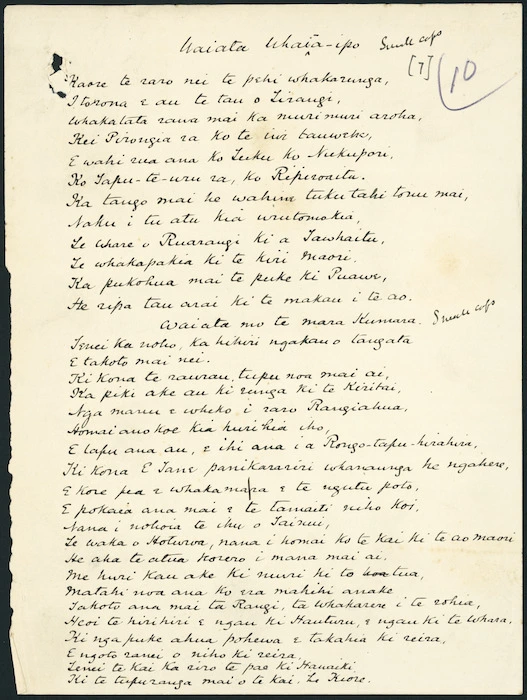 Waiata Whaia-ipo Small caps
[7] 10
Kaore te raro nei te pehi whakarunga,
Itorona e au te tau o Tirangi,
Whakatata rawa mai ka murimuri aroha,
Kei Pirongia ra ko te iwi tauwehe,
E wahi rua ana ko Tuku ko Nukupori,
Ko Tapu-te-uru ra, ko Ripiroaitu.
Ka tango mai he wahine tuku tahi tonu mai,
Naku i tu atu kia urutomokia,
Te whare o Ruarangi ki a Tawhaitu,
Te whakapakia ki te kiri Maori.
Ka pukohua mai te puke ki Puawe,
He ripa tau arai ki te makau i te ao.
Waiata mo te mara Kumara. Small caps
Tenei ka noho, ka hihiri ngakau o tangata
E takoto mai nei.
Ki kona te raurau, tupu noa mai ai,
Ka piki ake au ki runga ki te Kiritai,
Nga manu e wheko, i raro Rangiahua,
Homai ano koe kia hurihia iho,
E tapu ana au, e ihi ana i a Rongo-tapu-hirahira,
Ki kona E Tane panikarariri whanaunga he ngahere,
E kore pea e whakamara e te ngutu poto,
E pokaia ana mai e te tamaiti niho koi,
Nana i nohoia te ihu o Tainui,
Te waka o Hoturoa, nana i homai ko te kai ki te ao maori
He aha te atua korero i mana mai ai.
Me huri kau ake ki muri ki to tua,
Matahi noa ana ko era mahihi anake
Takoto ana mai ta Rangi, ta whakarere i te rohia,
Hcoi te hirihiri e ngau ki Hauturu, e ngau ki te whara,
Ki nga puke ahua pohewa e takahia ki reira,
E ngoto ranei o niho ki reira,
Tenei te kai ka riro te pao ki Hawaiki
Ki te tupuranga mai o te kai. Te Kiore.